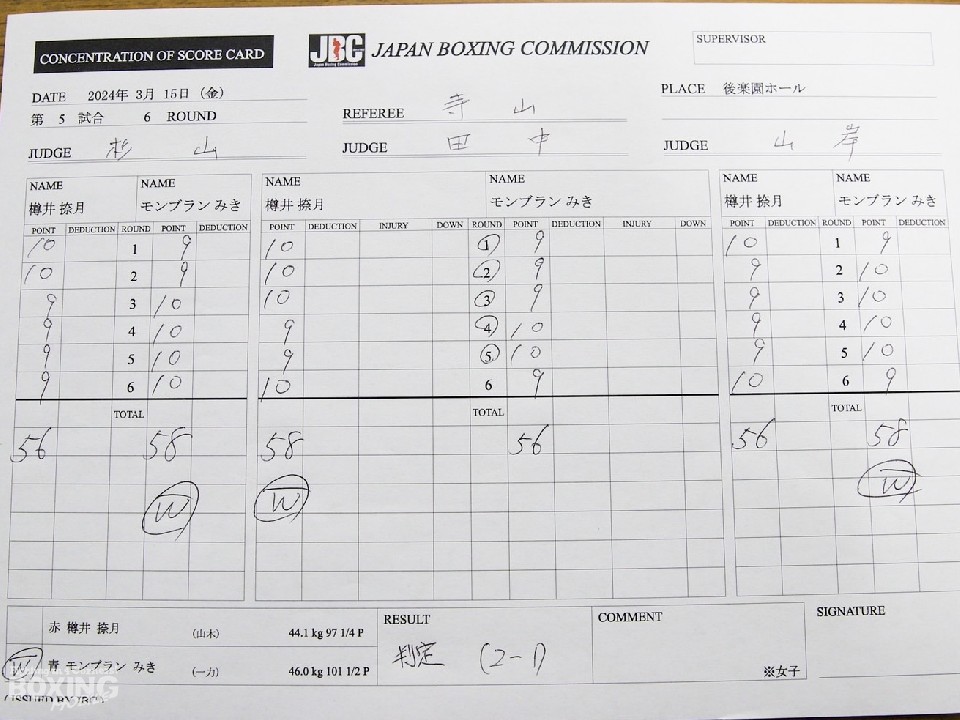 CONCENTRATION OF SCORE CARD
JBC JAPAN BOXING COMMISSION
Japan Boxing Commission
SUPERVISOR
DATE 2024年 3月 15日 (金)
第 5 試合 6 ROUND
REFEREE 寺 山
PLACE 後楽園ホール
JUDGE 杉 山
JUDGE 田 中
JUDGE 山 岸
NAME NAME NAME NAME NAME NAME
樽井 捺月 モンブラン みき 樽井 捺月 モンブラン みき 樽井 捺月 モンブラン みき
POINT DEDUCTION ROUND POINT DEDUCTION POINT DEDUCTION INJURY DOWN ROUND POINT DEDUCTION INJURY DOWN POINT DEDUCTION ROUND POINT DEDUCTION
10 1 9 10 1 9 10 1 9
10 2 9 10 2 9 9 2 10
9 3 10 10 3 9 9 3 10
9 4 10 9 4 10 9 4 10
9 5 10 9 5 10 9 5 10
9 6 10 10 6 9 10 6 9
TOTAL TOTAL TOTAL
56 58 58 56 56 58
W W W
赤 樽井 捺月 (山木) 44.1 kg 97 1/4 P
W 青 モンブラン みき (一力) 46.0 kg 101 1/2 P
RESULT
判定 (2-1)
COMMENT
※女子
SIGNATURE
BOXING